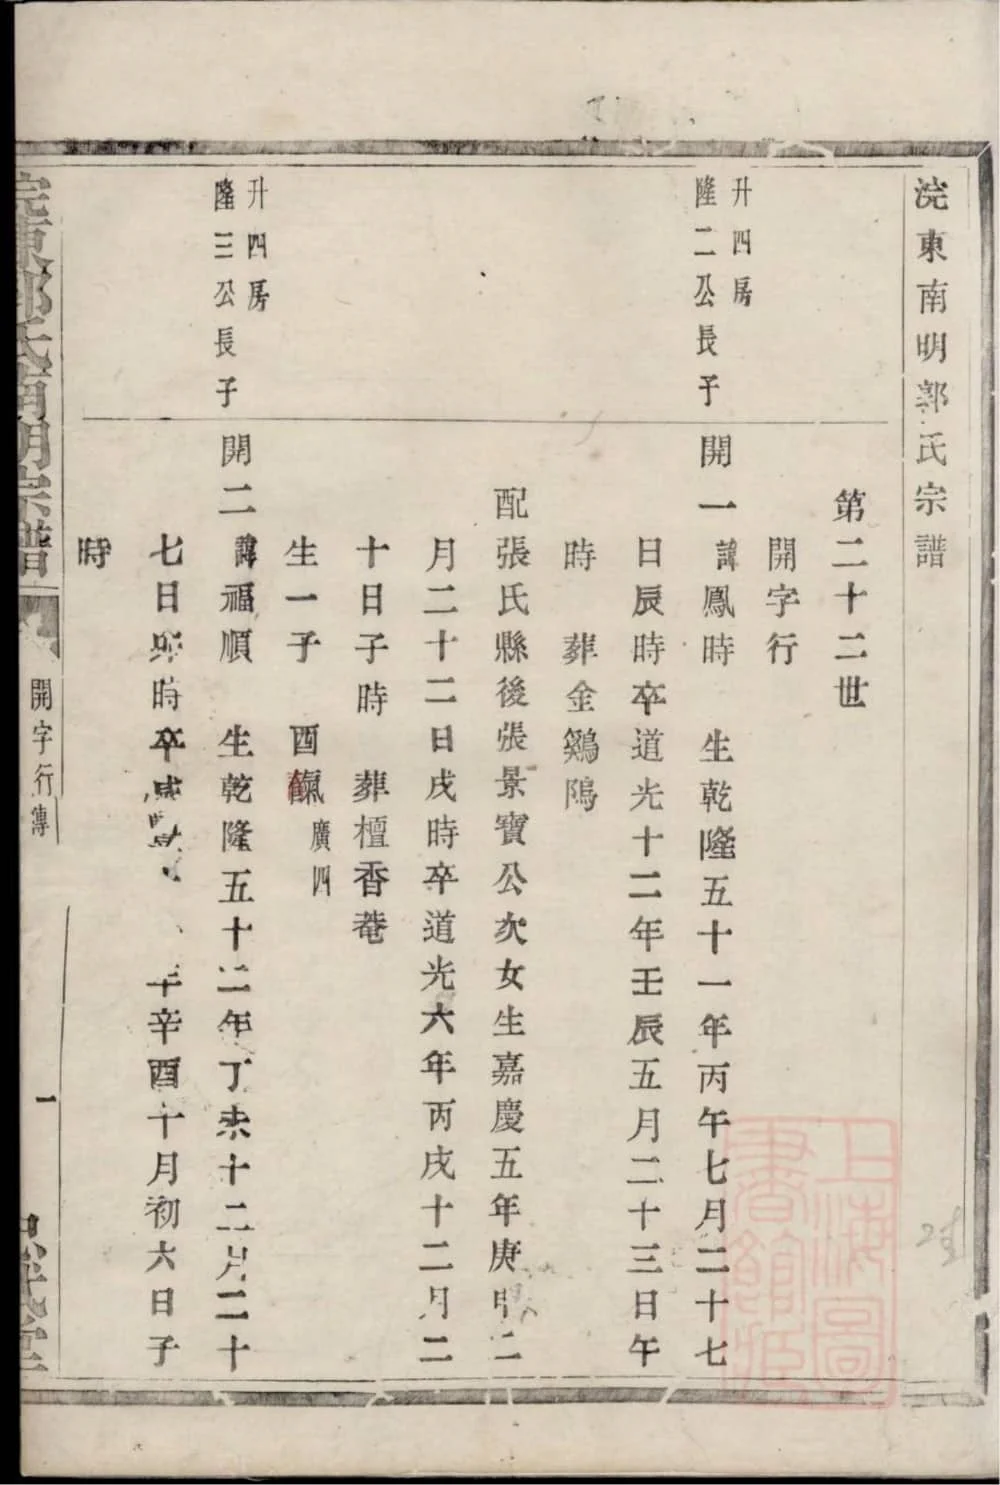 浣東南明郭氏宗譜
第二十二世
開字行
升四房
隆二公長子
開一 諱鳳時 生乾隆五十一年丙午七月二十七
日辰時卒道光十二年壬辰五月二十三日午
時 葬金鷄隝
配張氏縣後張景寶公次女生嘉慶五年庚申二
月二十二日戌時卒道光六年丙戌十二月二
十日子時 葬檀香菴
生一子 酉 廣四
升四房
隆三公長子
開二 諱福順 生乾隆五十二年丁未十二月二十
七日卯時卒咸豐 年辛酉十月初六日子
時
浣東郭氏南明宗譜
開字行傳
一
上海圖書館藏